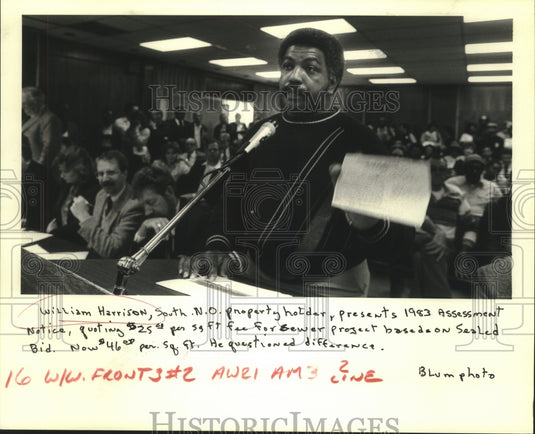 HISTORIC IMAGES
William Harrison, South. N.O. property holder, presents 1983 Assessment
Notice, quoting $25.00 per sq ft fee for sewer project based on Sealed
Bid. Now $46.00 per. sq. ft. He questioned difference.
16 W/W. FRONTS #2 AW21 AM3 2 LINE
Blum photo
HISTORIC IMAGES